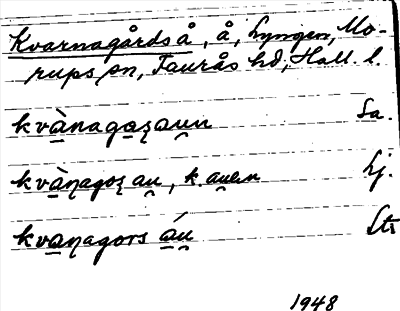 Kvarnagårds å, å, Lyngen, Mo-
rups sn, Faurås hd, Hall. l.
kvànagaşau̯n Sa.
kvàṇagoş au̯, k. au̯en Lj.
kvaṇagors áu̯ Str
1948